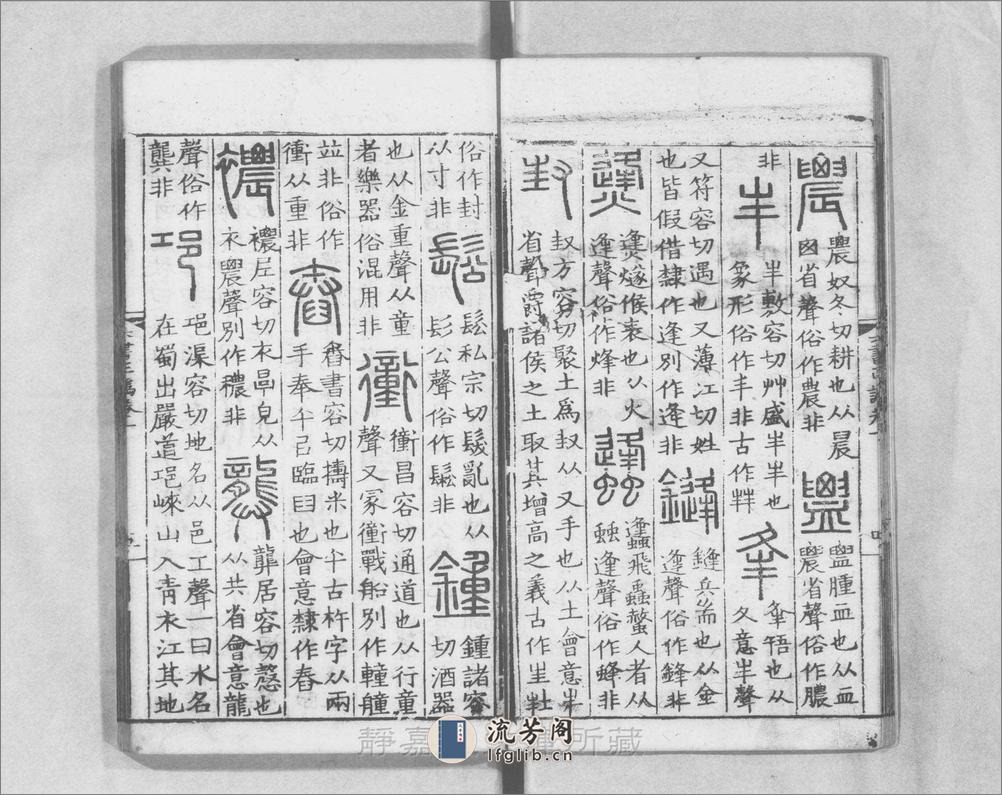 農
農奴冬切耕也从晨
囟省聲俗作農非
盥腫血也从血
農省聲俗作膿
非
丰
丰敷容切艸盛丰丰也
象形俗作丰非古作
夆
夆啎也从
夂意丰聲
又符容切遇也又薄江切姓
也皆假借隸作逢別作逄非
鏠
鏠兵耑也从金
逢聲俗作鋒非
㷭燧候表也从火
逢聲俗作烽非
飛蟲螫人者从
䖵逢聲俗作蜂非
方容切聚土爲 从又手也从土會意丰
省聲爵諸侯之土取其增高之義古作
俗作封
从寸非
鬆
鬆私宗切髮亂也从
髟公聲俗作鬆非
鍾
鍾諸容
切酒器
也从金重聲从童
者樂器俗混用非
衝
衝昌容切通道也从行童
聲又冡衝戰船別作䡴艟
並非俗作
衝从重非
舂
舂書容切擣米也午古杵字从兩
手奉午㠯臨臼也會意隸作舂
襛
襛尼容切衣厚皃从
衣農聲別作穠非
龏
龏居容切愨也
从共省會意龍
聲俗作
龔非
邛
邛渠容切地名从邑工聲一曰水名
在蜀出嚴道邛崍山入靑衣江其地
靜嘉 所藏
流芳阁
lfglib.cn